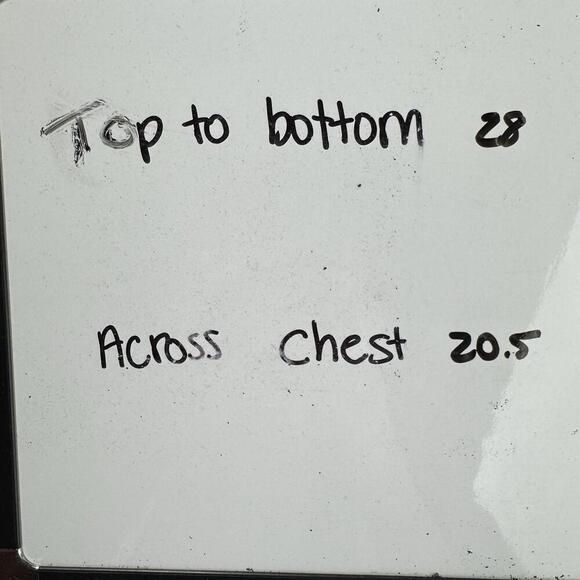 Top to bottom 28
Across Chest 20.5